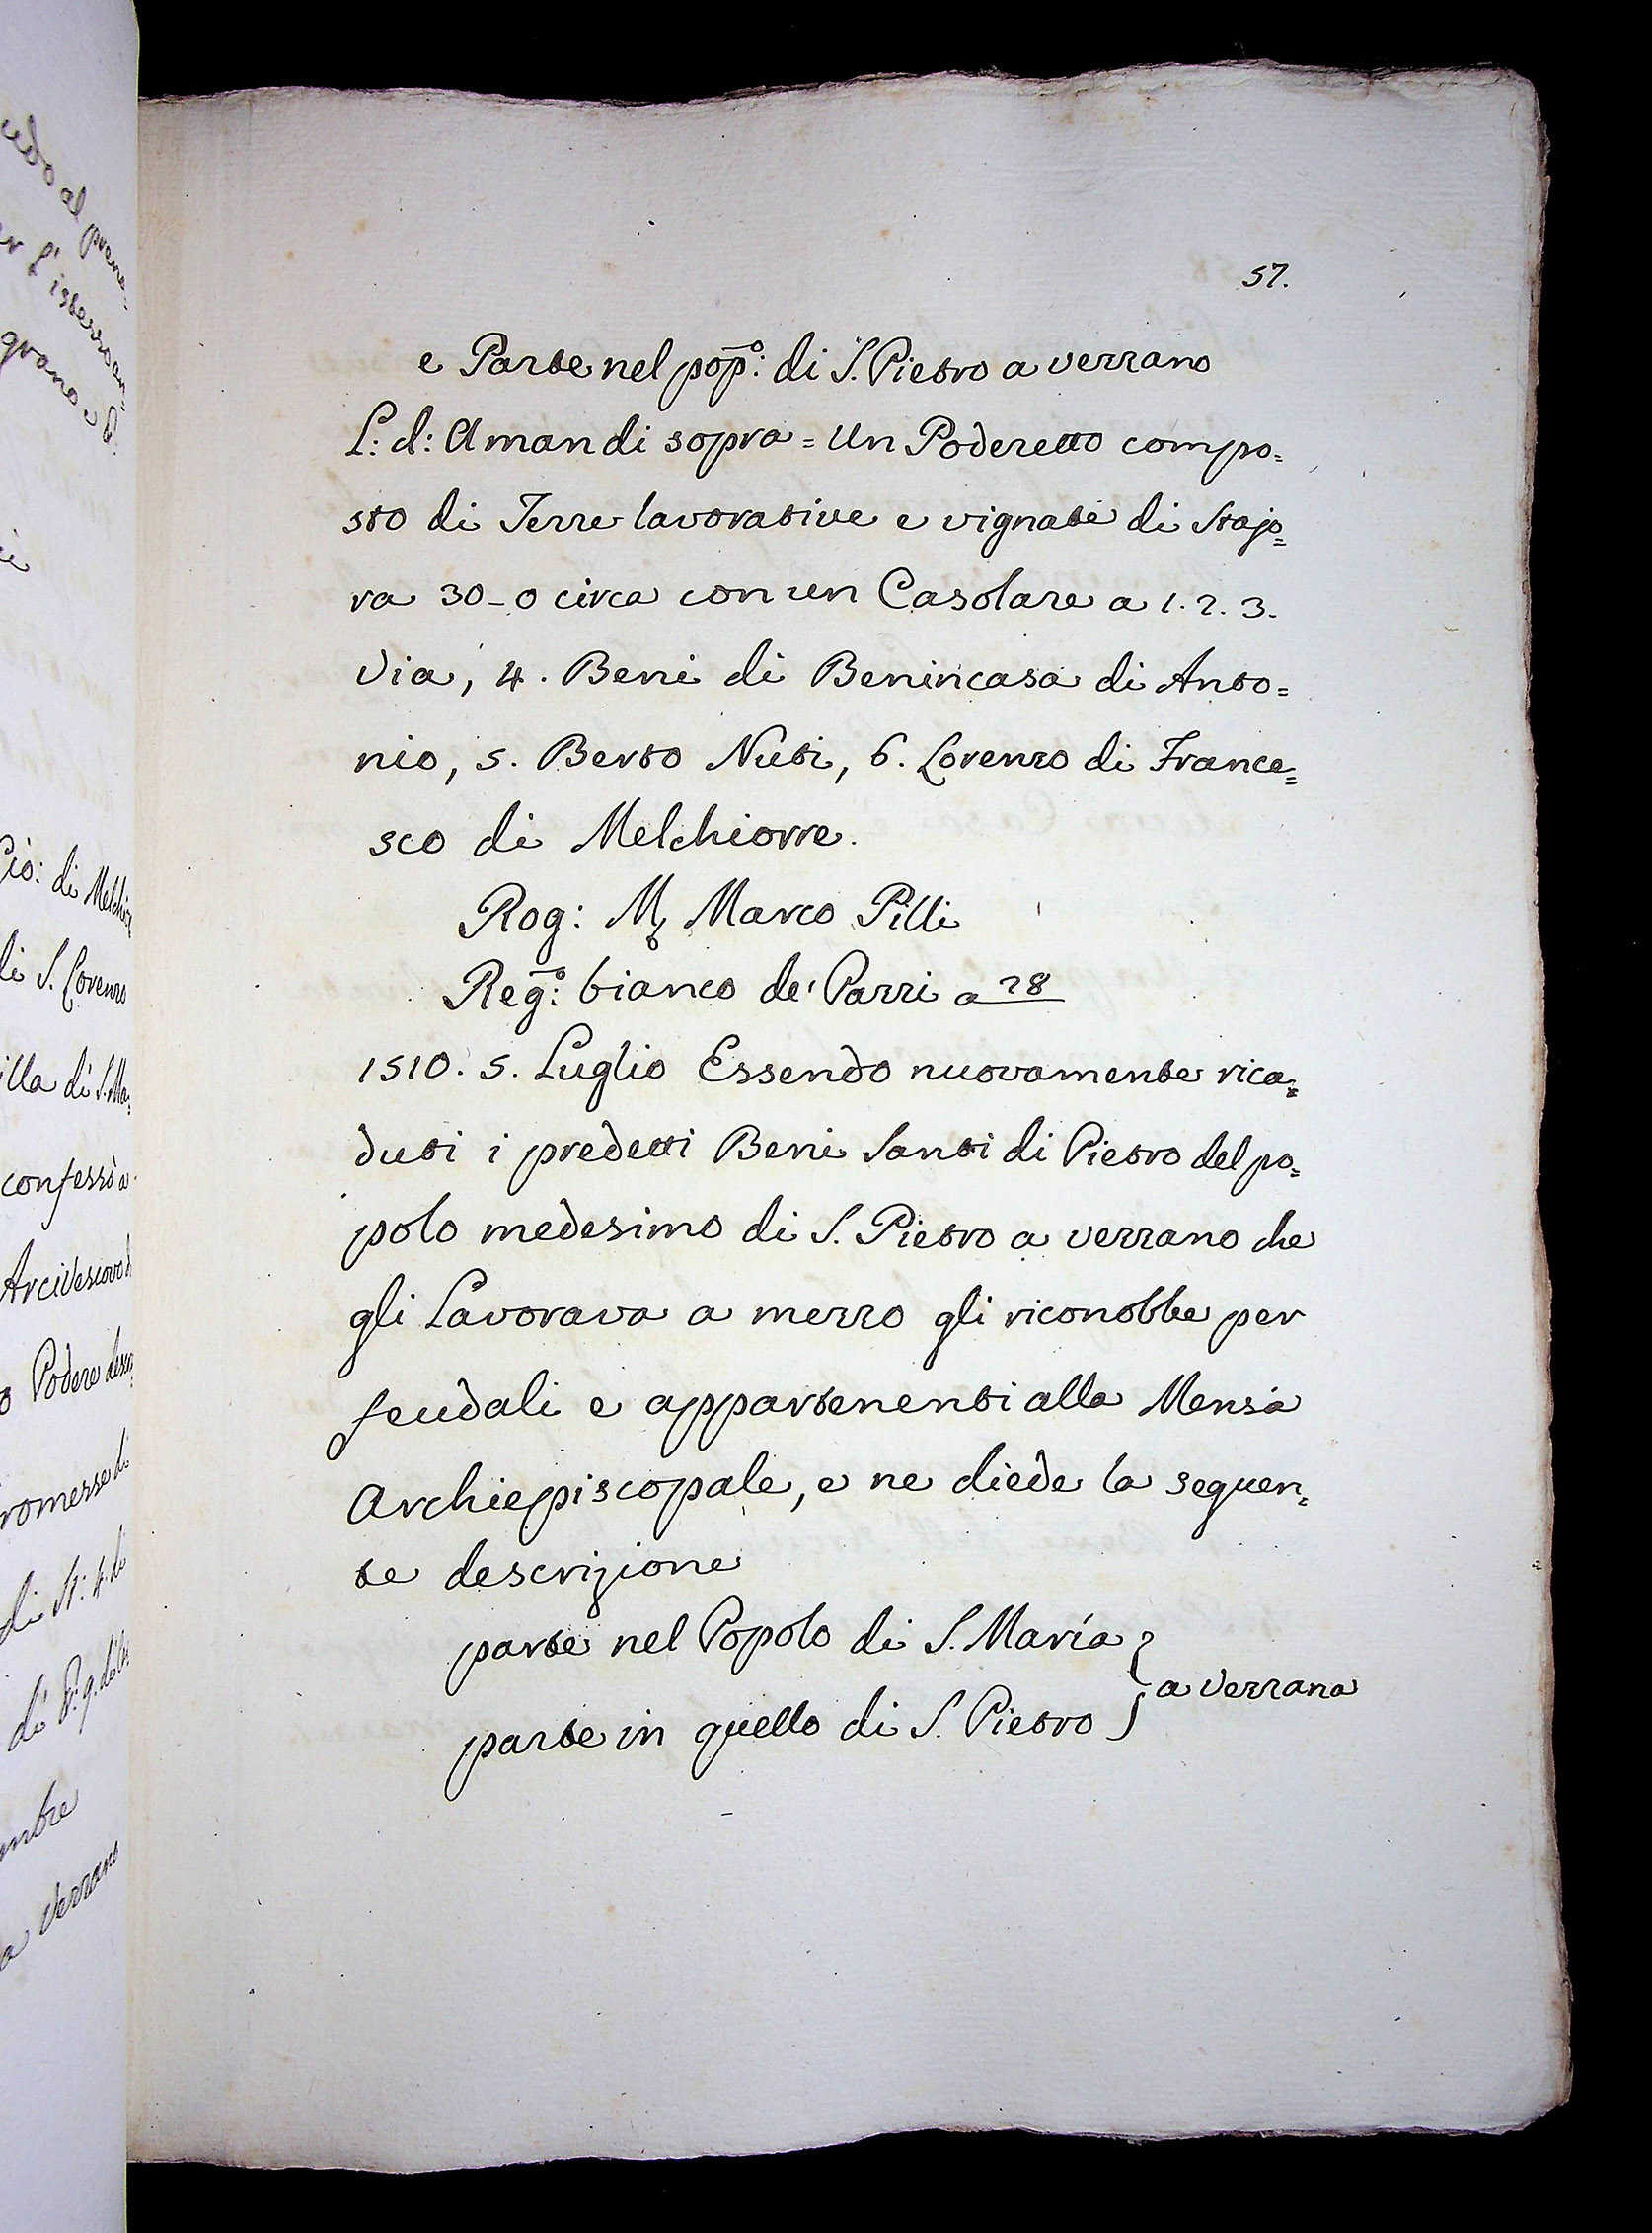 57.
e Parte nel pop̄o: di S. Pietro a verrano
L: d: A mandi sopra = Un Poderetto compo=
sto di Terre lavorative e vignate di Stajo=
ra 30-0 circa con un Casolare a 1. 2. 3.
via, 4. Beni di Benincasa di Anto=
nio, 5. Berto Nuti, 6. Lorenzo di France=
sco di Melchiorre.
Rog: M. Marco Pilli
Reḡo: bianco de' Pazzi a 28
1510. 5. Luglio Essendo nuovamente rica=
duti i predetti Beni Santi di Pietro del po=
polo medesimo di S. Pietro a verrano che
gli Lavorava a mezzo gli riconobbe per
feudali e appartenenti alla Mensa
Archiepiscopale, e ne diede la seguen=
te descrizione
parte nel Popolo di S. Maria
a verrana
parte in quello di S. Pietro